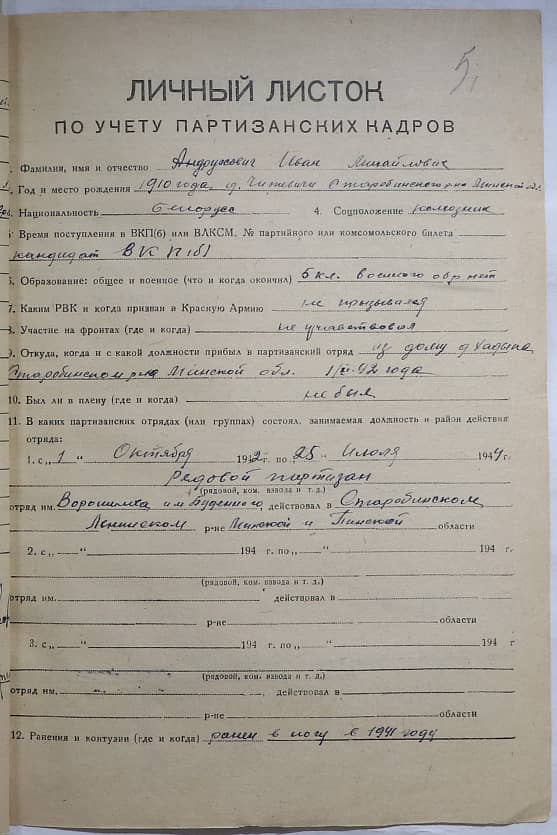 5
ЛИЧНЫЙ ЛИСТОК
ПО УЧЕТУ ПАРТИЗАНСКИХ КАДРОВ
Фамилия, имя и отчество Андрухович Иван Михайлович
Год и место рождения 1910 года, д. Чижевичи Старобинского р-на Минской обл.
Национальность белорус 4. Соцположение колхозник
Время поступления в ВКП(б) или ВЛКСМ, № партийного или комсомольского билета
кандидат ВКП(б)
6. Образование: общее и военное (что и когда окончил) 5 кл. военного обр нет
7. Каким РВК и когда призван в Красную Армию не призывался
8. Участие на фронтах (где и когда) не участвовал
9. Откуда, когда и с какой должности прибыл в партизанский отряд из дому д.
Старобинском р-на Минской обл. 42 года
10. Был ли в плену (где и когда) не был
11. В каких партизанских отрядах (или группах) состоял, занимаемая должность и район действия
отряда:
1. с „1“ Октября 1942 г. по „25“ Июля 1944 г.
Рядовой партизан
(рядовой, ком. взвода и т. д.)
отряд им. Ворошилова, им Буденного, действовал в Старобинском
Ленинском р-не Минской и Пинской области
2. с „ “ 194 г. по „ “ 194 г.
(рядовой, ком. взвода и т. д.)
отряд им. действовал в
р-не области
3. с „ “ 194 г. по „ “ 194 г
(рядовой, ком. взвода и т. д.)
отряд им. действовал в
р-не области
12. Ранения и контузии (где и когда) ранен в ногу в 1941 году